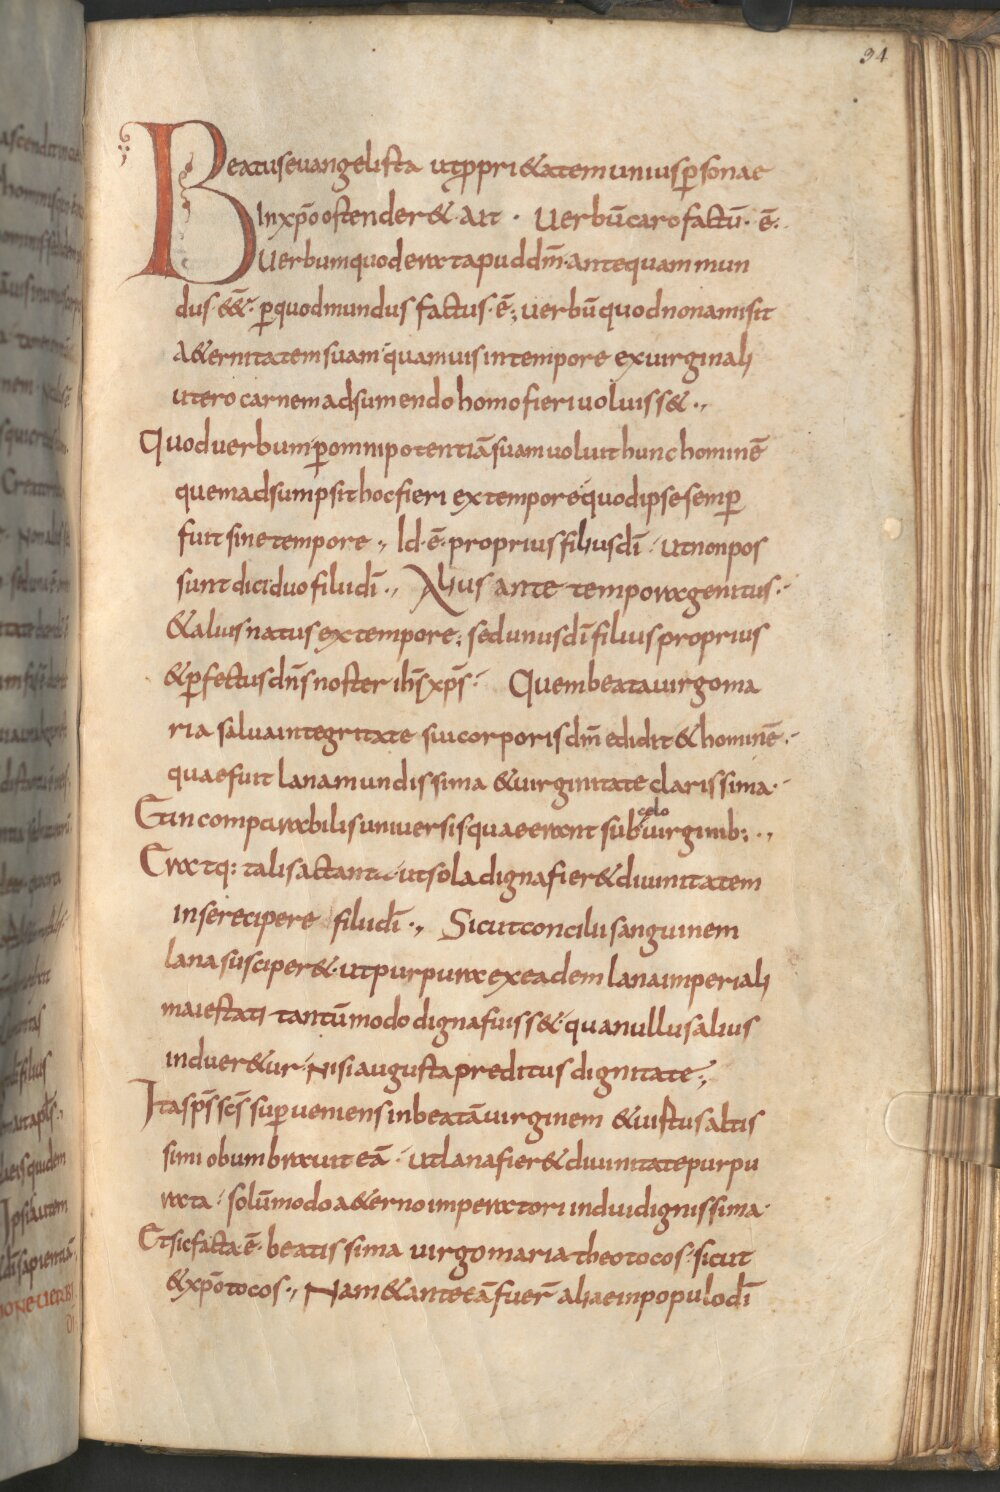 34
Beatus euangelista ut ꝓpri&atem unius ꝑsonae
In xp̄o ostender& · Ait · Uerbū caro factū · ē ·
Uerbum quod erat apud dm̄ · antequam mun
dus · ē&̄ · ꝑ quod mundus factus · ē ; uerbū quod non amisit
a&ernitatem suam · quamuis in tempore ex uirginali
utero carnem adsumendo homo fieri uoluiss& ·,
Quod uerbum · ꝑ omnipotentiā suam uoluit hunc hominē
quem adsumpsit hoc fieri ex tempore · quod ipse semꝑ
fuit sine tempore ·, Id · ē · proprius filius dī · ut non pos
sunt dici duo filii dī ·, Alius ante tempora genitus ·
& alius natus ex tempore ; sed unus dī filius proprius
& ꝑfectus dn̄s noster ih̄s xp̄s · Quem beata uirgo ma
ria salua integritate sui corporis dm̄ edidit & hominē ·
quae fuit lana mundissima & uirginitate clarissima ·
Et incomparabilis uniuersis quae erant sub celo uirginib; ·,
Eratq: talis ac tanta · ut sola digna fier& diuinitatem
in se recipere filii dī ·, Sicut concilii sanguinem
lana susciper& · ut purpura ex eadem lana imperiali
maiestati tantūmodo digna fuiss& · qua nullus alius
induer&ur · Nisi augusta preditus dignitate ·,
Ita sp̄s sc̄s suꝑueniens in beatā uirginem & uirtus altis
simi obumbrauit eā · ut lana fier& diuinitate purpu
rata · solūmodo a&erno imperatori indui dignissima ·
Et sic facta · ē · beatissima uirgo maria theotocos · sicut
& xp̄otocos ·, Nam & ante eā fuer̄ aliae in populo dī